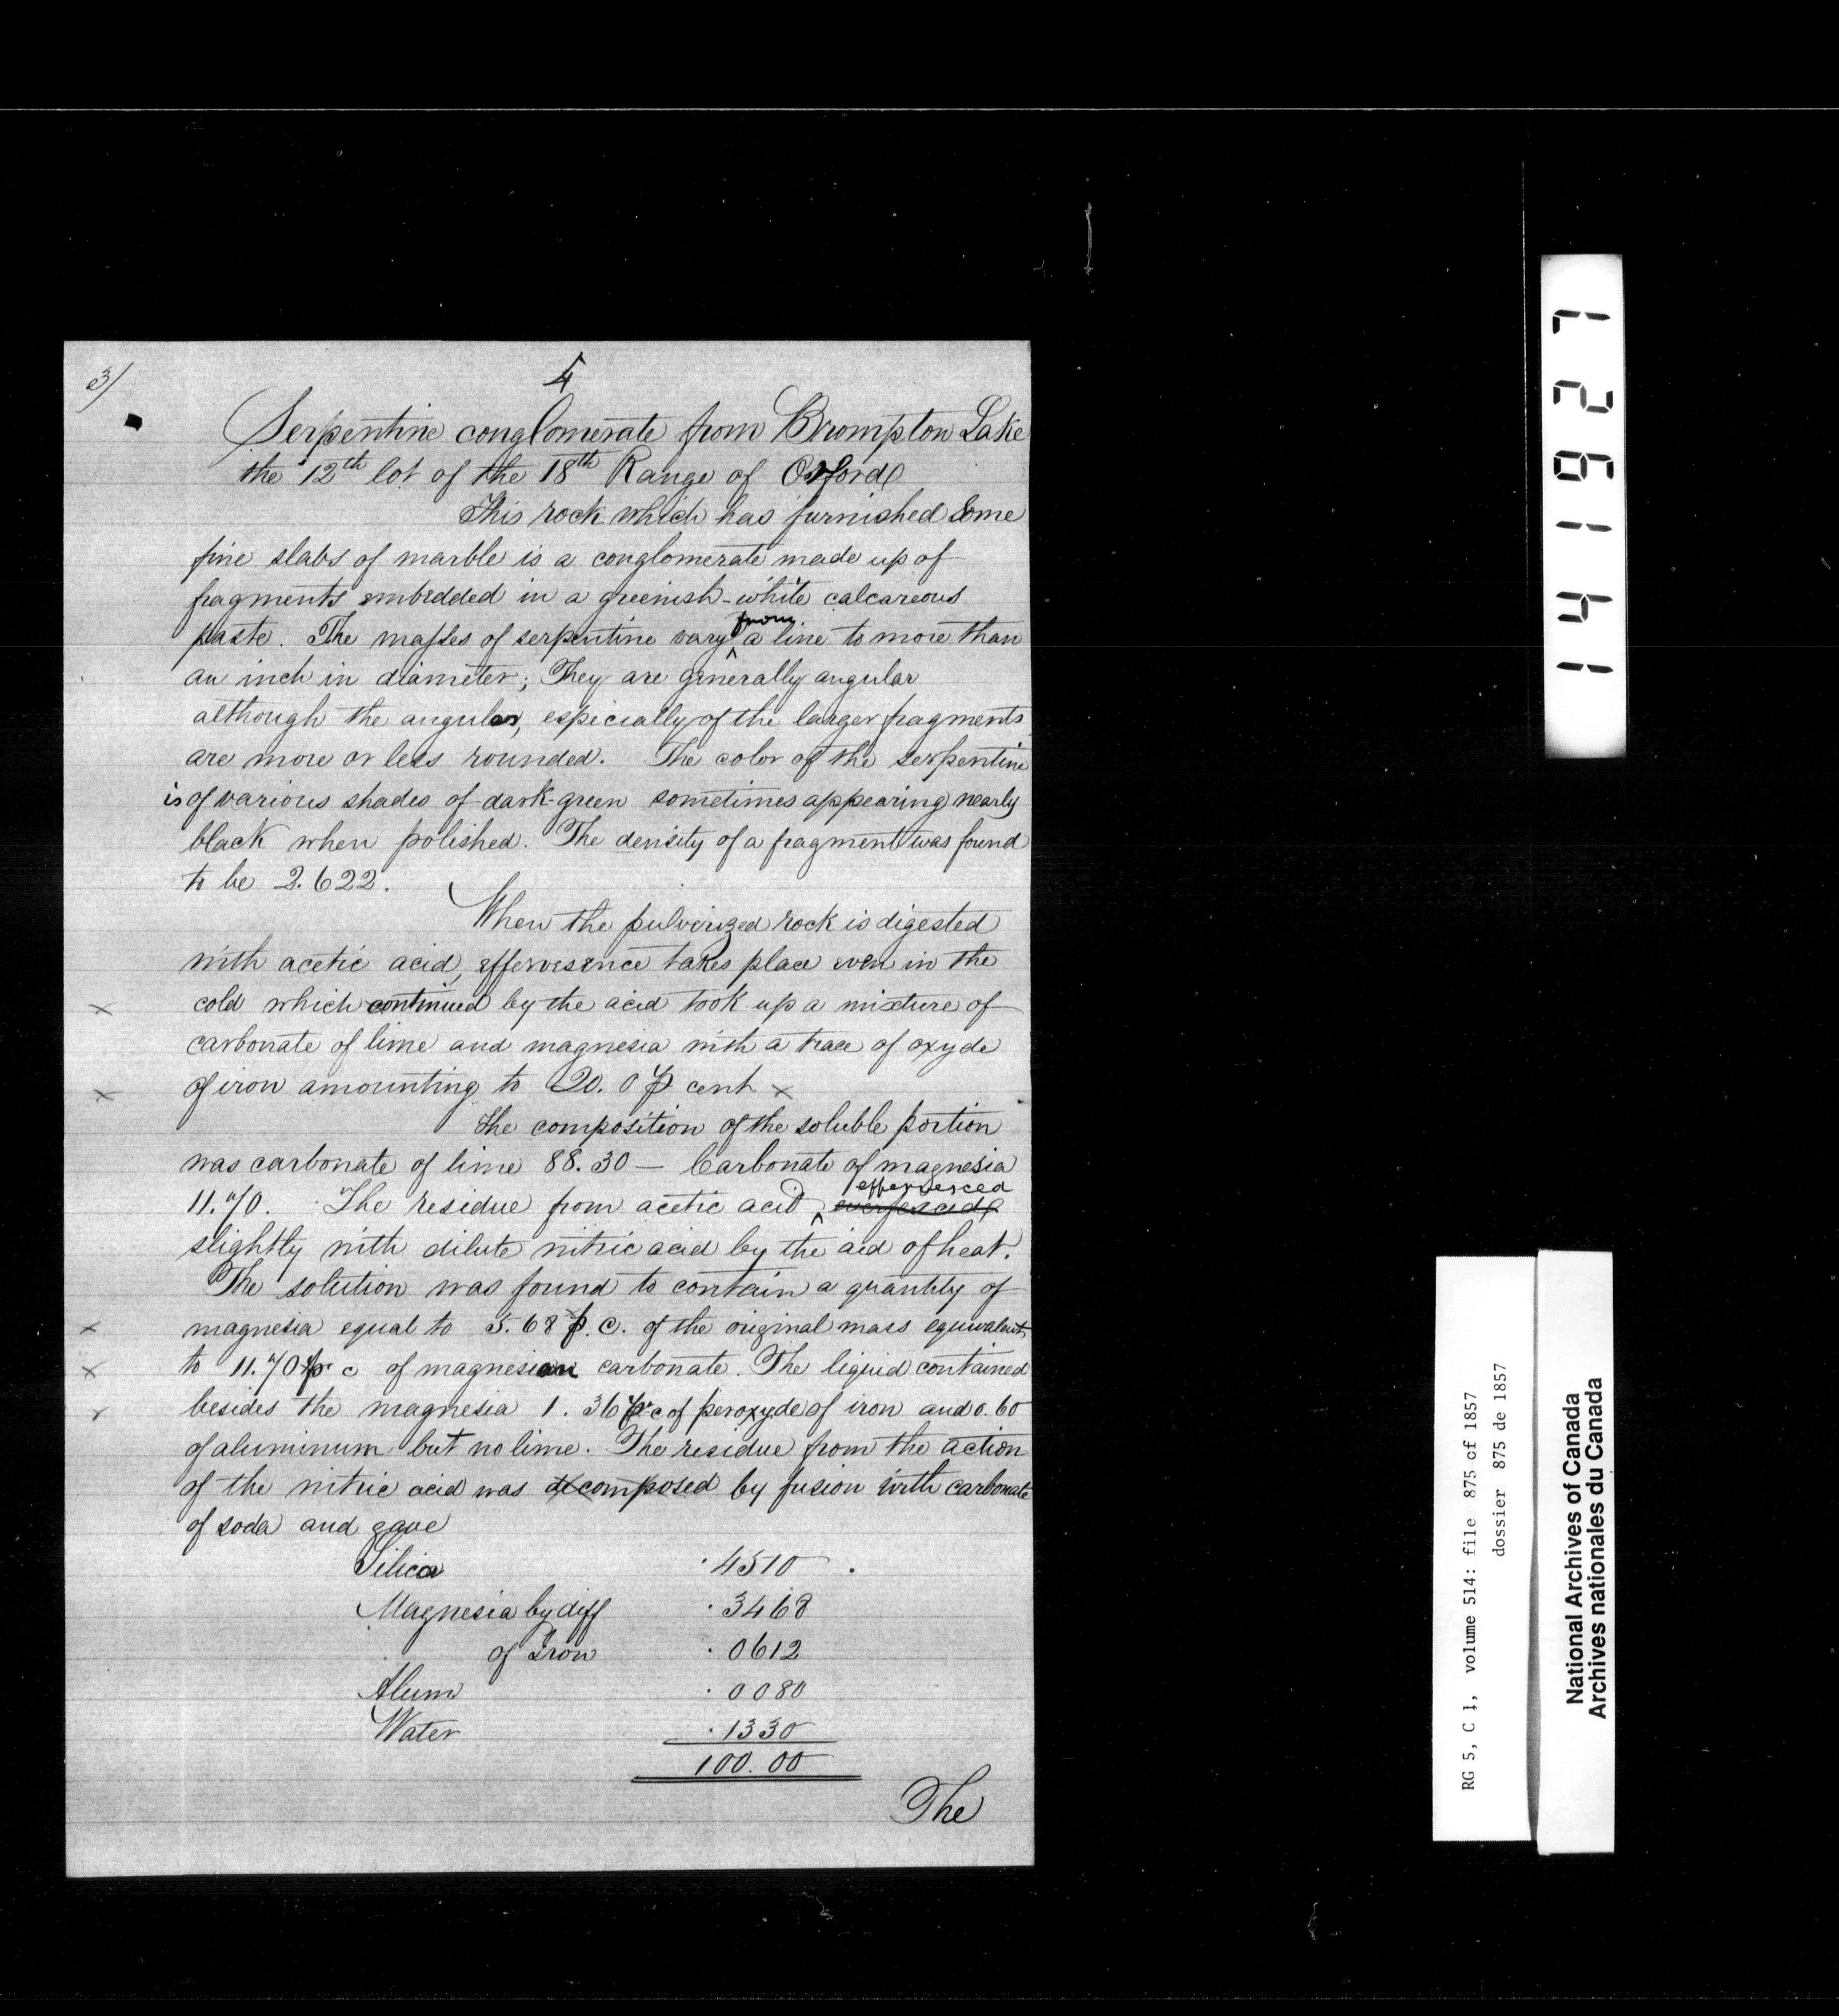 3/
4
Serpentine conglomerate from Brompton Lake
the 12th lot of the 18th Range of Orford
This rock which has furnished some
fine slabs of marble is a conglomerate made up of
fragments embedded in a greenish-white calcareous
paste. The masses of serpentine vary from a line to more than
an inch in diameter; They are generally angular
although the angules, especially of the larger fragments
are more or less rounded. The color of the serpentine
is of various shades of dark-green sometimes appearing nearly
black when polished. The density of a fragment was found
to be 2.622.
When the pulverized rock is digested
with acetic acid, effervesence takes place even in the
x cold which continued by the acid took up a mixture of
carbonate of lime and magnesia with a trace of oxyde
x of iron amounting to 20.0 p cent x
The composition of the soluble portion
was carbonate of lime 88.30 — Carbonate of magnesia
11.70. The residue from acetic acid effervesced
slightly with dilute nitric acid by the aid of heat.
The solution was found to contain a quantity of
x magnesia equal to 5.68 p. c. of the original mass equivalent
x to 11.70 pr c of magnesian carbonate. The liquid contained
x besides the magnesia 1.36 pr c of peroxyde of iron and 0.60
of aluminum but no lime. The residue from the action
of the nitric acid was decomposed by fusion with carbonate
of soda and gave
Silica .4510 .
Magnesia by diff .3468
of Iron .0612
Alum .0080
Water .1330
100.00
The
141927
RG 5, C 1, volume 514: file 875 of 1857
dossier 875 de 1857
National Archives of Canada
Archives nationales du Canada